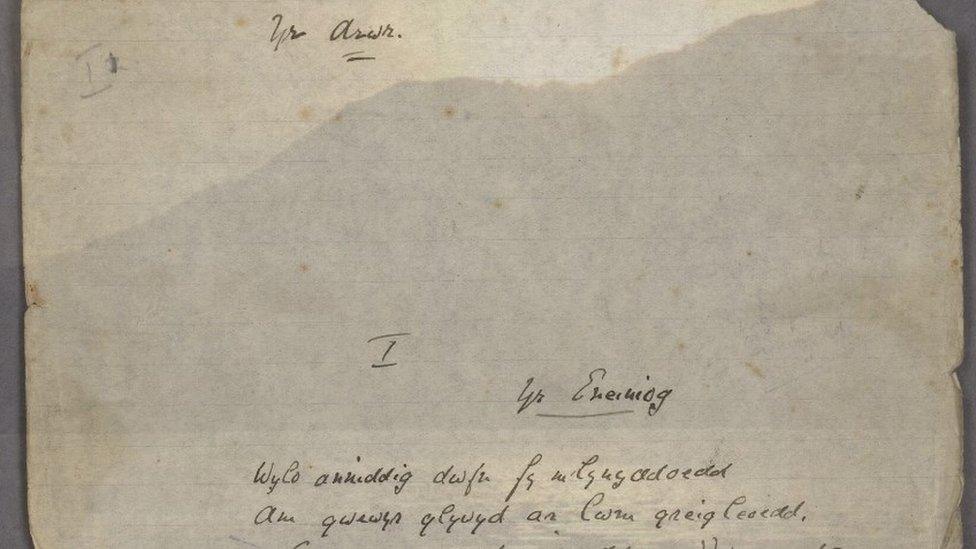 Yr Arwr.
I
I
Yr Eneiniog
Wylo anniddig dwfn fy mlynyddoedd
Am gwewyr glywyd ar lwm greigleoedd,